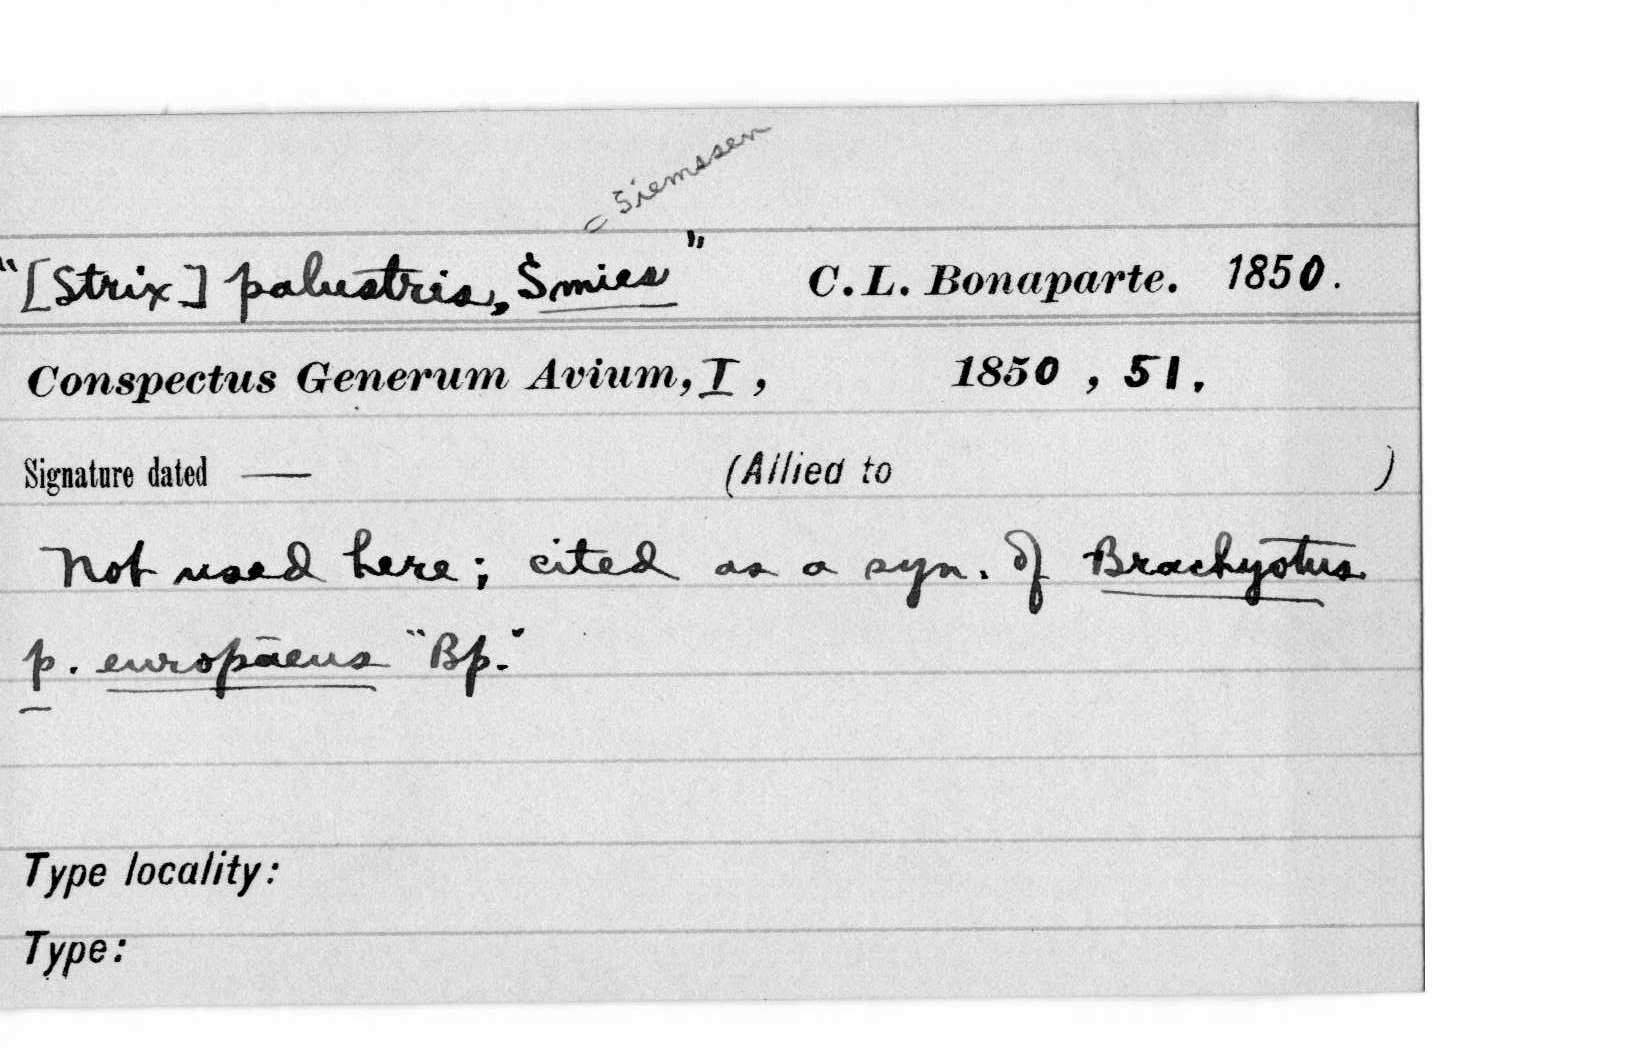 = Siemssen
"[Strix] palustris, Smies" C. L. Bonaparte. 1850.
Conspectus Generum Avium, I, 1850, 51.
Signature dated — (Allied to )
Not used here; cited as a syn. of Brachyotus
p. europaeus "Bp."
Type locality:
Type: